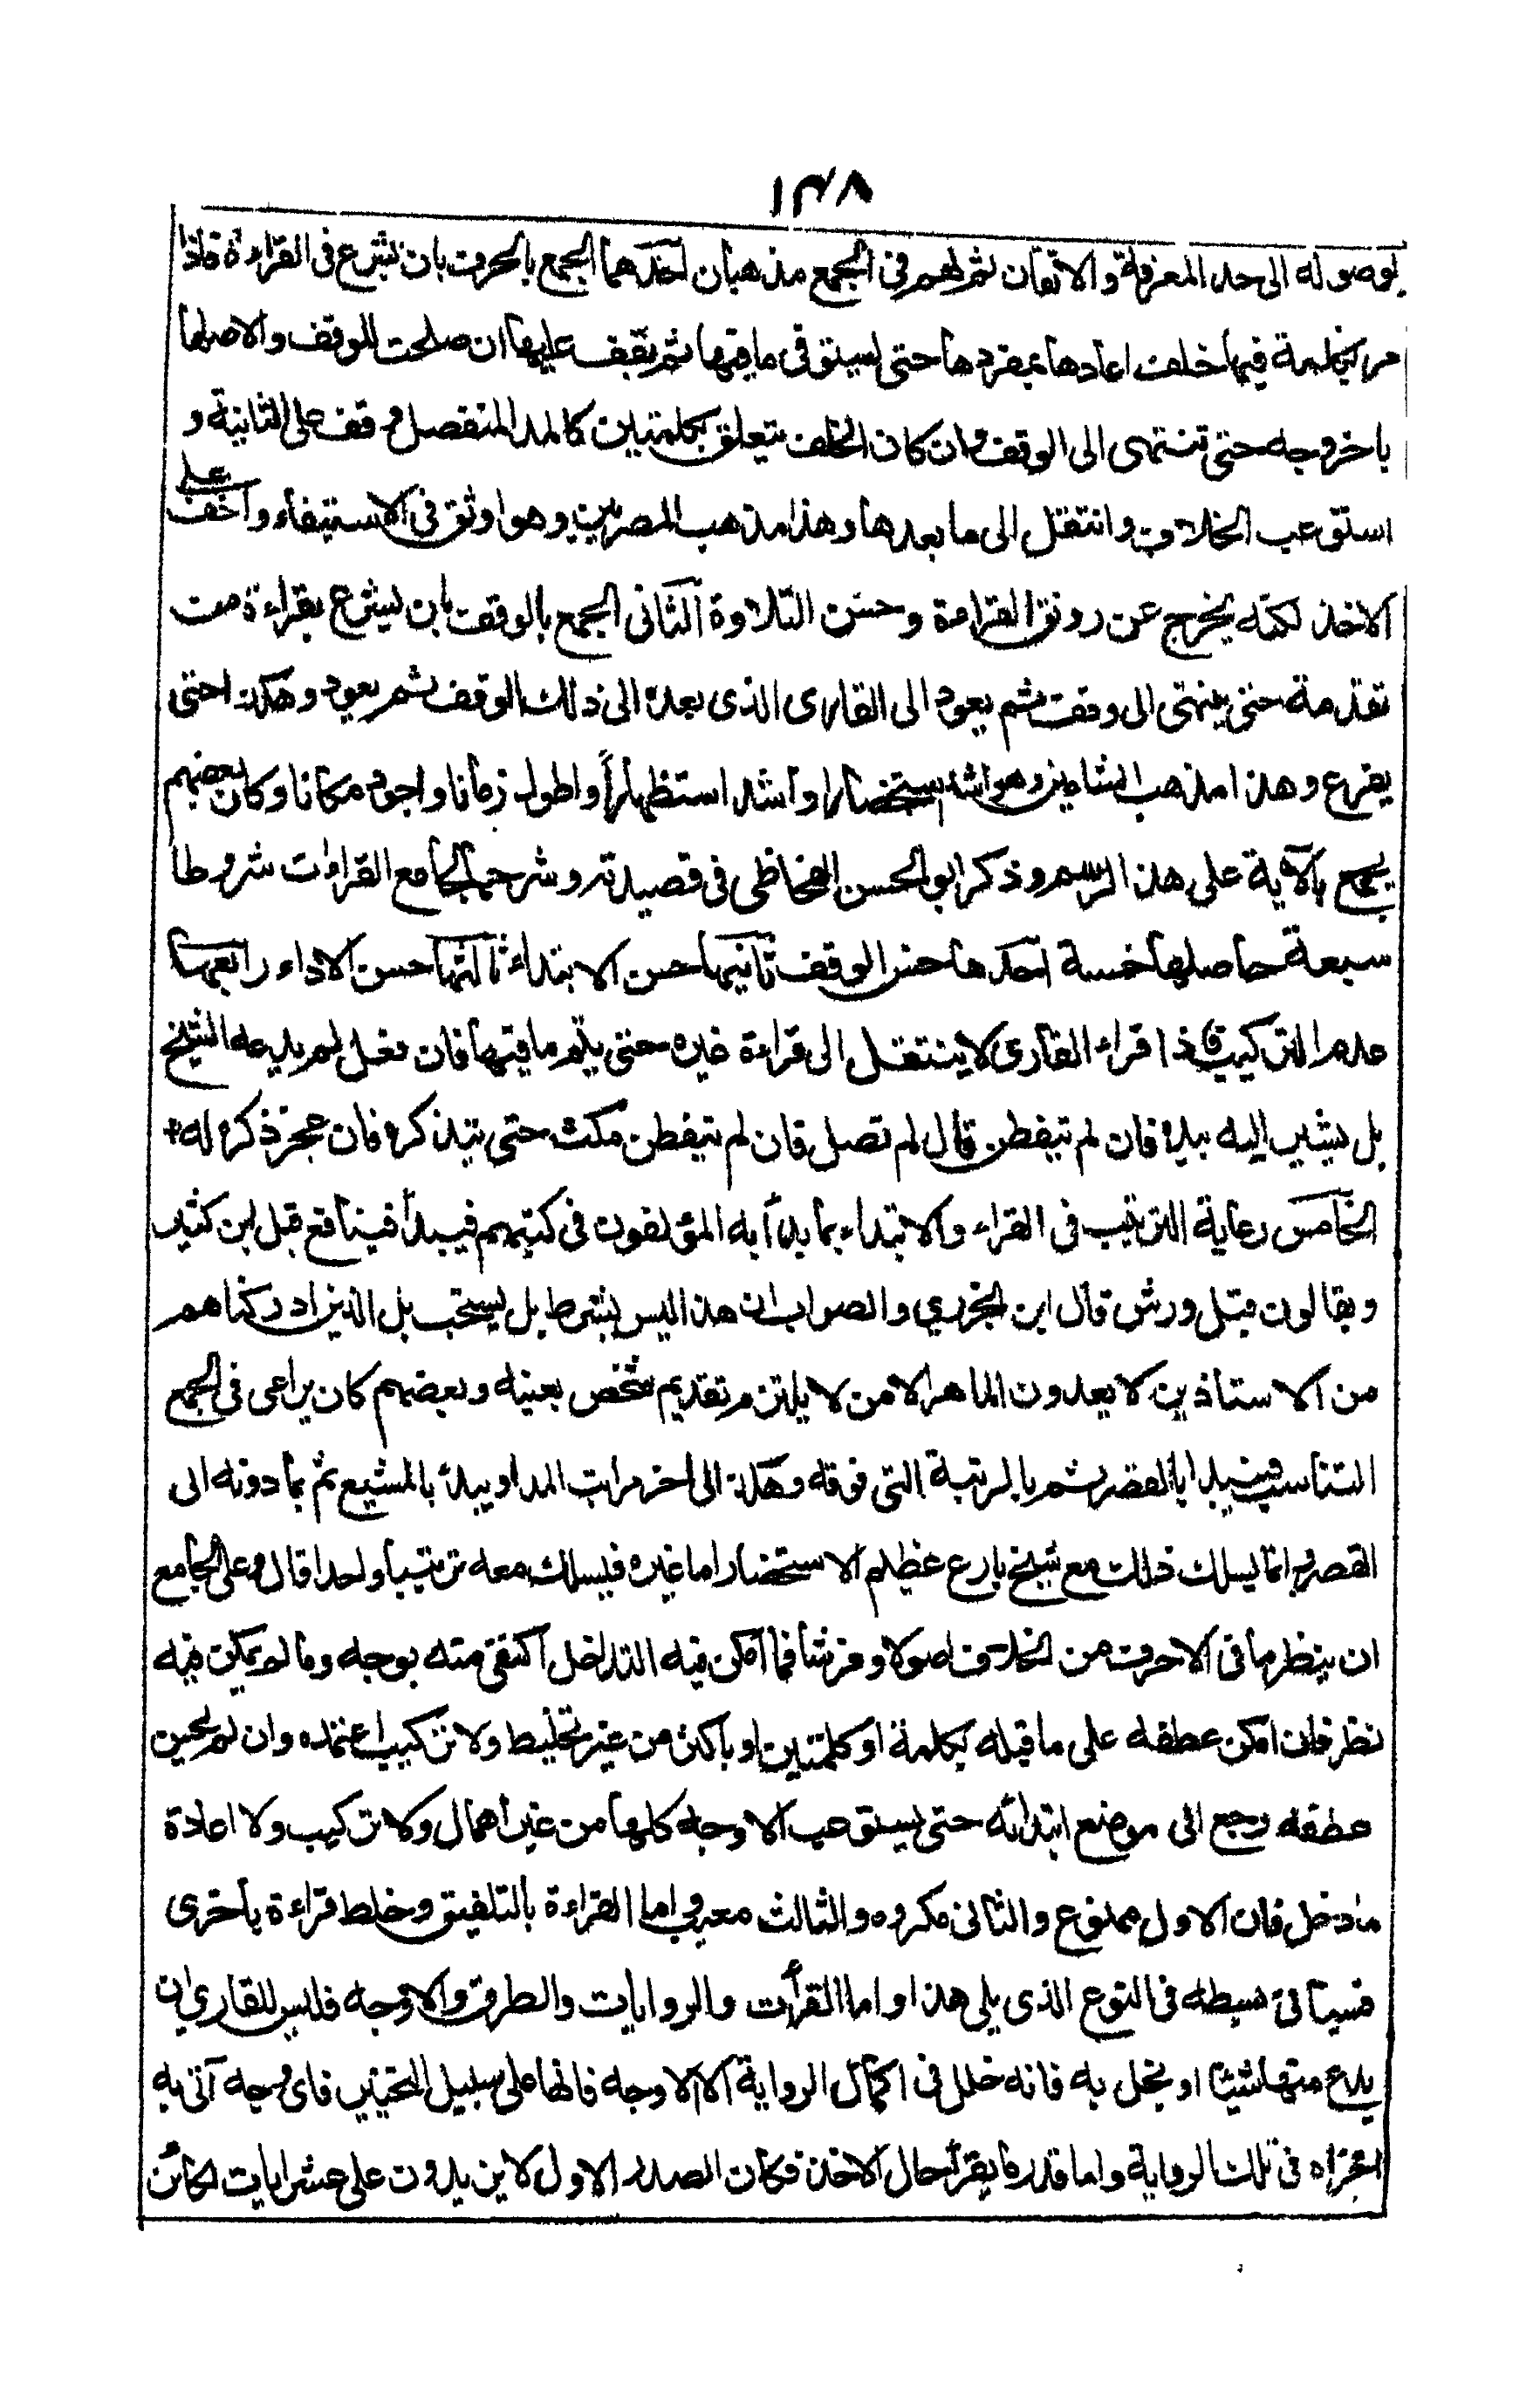 ١٣٨
لوصوله الى حد المعرفة والاتقان ثم لهم فى الجمع مذهبان احدهما الجمع بالحرف بان يشرع فى القراءة فاذا
مر بكلمة فيها خلف اعادها بمفردها حتى يستوفى ما فيها ثم يقف عليها ان صلحت للوقف والا وصلها
باخر وجه حتى تنتهى الى الوقف وان كان الخلف يتعلق بكلمتين كالمد المنفصل وقف على الثانية و
استوعب الخلاف وانتقل الى ما بعدها وهذا مذهب المصريين وهو اوثق فى الاستيفاء واخف على
الاخذ لكنه يخرج عن رونق القراءة وحسن التلاوة الثانى الجمع بالوقف بان يشرع بقراءة من
تقدمه حتى ينتهى الى وقف ثم يعود الى القارى الذى بعده الى ذلك الوقف ثم يعود وهكذا حتى
يفرغ وهذا مذهب الشاميين وهو اشد استحضارا واشد استظهاراً واطول زمانا واجود مكانا وكان بعضهم
يجمع بالآية على هذا الرسم وذكر ابو الحسن القحاظى فى قصيدته وشرحها لجامع القراءات شروطا
سبعة حاصلها خمسة احدها حسن الوقف ثانيها حسن الابتداء ثالثها حسن الاداء رابعها
عدم التركيب فاذا قراء القارى لا ينتقل الى قراءة غيره حتى يتم ما فيها فان فعل لم يدعه الشيخ
بل يشير اليه بيده فان لم يتفطن قال لم تصل فان لم يتفطن مكث حتى يتذكر فان عجز ذكره له
الخامس رعاية الترتيب فى القراء والابتداء بما بدأ به المؤلفون فى كتبهم فيبدأ بنافع قبل ابن كثير
وبقالون قبل ورش قال ابن الجزري والصواب ان هذا ليس بشرط بل يستحب بل الذين ادركناهم
من الاستاذين لا يعدون الماهر الا من لا يلتزم تقديم شخص بعينه وبعضهم كان يراعى فى الجمع
التناسب فيبدا بالقصر ثم بالرتبة التى فوقه وهكذا الى اخر مراتب المد او يبدأ بالمشبع ثم بما دونه الى
القصر وانما يسلك ذلك مع شيخ بارع عظيم الاستحضار اما غيره فيسلك معه ترتيبا واحدا قال وعلى الجامع
ان ينظر ما فى الاحرف من الخلاف اصولا وفرشا فما امكن فيه التداخل اكتفى منه بوجه وما لم يمكن فيه
نظر فان امكن عطفه على ما قبله بكلمة او كلمتين او باكثر من غير تخليط ولا تركيب اعتمده وان لم يحسن
عطفه رجع الى موضع ابتدائه حتى يستوعب الاوجه كلها من غير اهمال ولا تركيب ولا اعادة
ما دخل فان الاول ممنوع والثانى مكروه والثالث معيب واما القراءة بالتلفيق وخلط قراءة باخرى
فسياتى بسطه فى النوع الذى يلى هذا واما القرأت والروايات والطرق والاوجه فليس للقاري ان
يدع منها شيئا او يخل به فانه خلل فى اكمال الرواية الا الاوجه فانها على سبيل التخيير فاى وجه آتى به
اجزاه فى تلك الرواية واما قدر ما يقرأ حال الاخذ فكان الصدر الاول لا يزيدون على عشر ايات لكائن